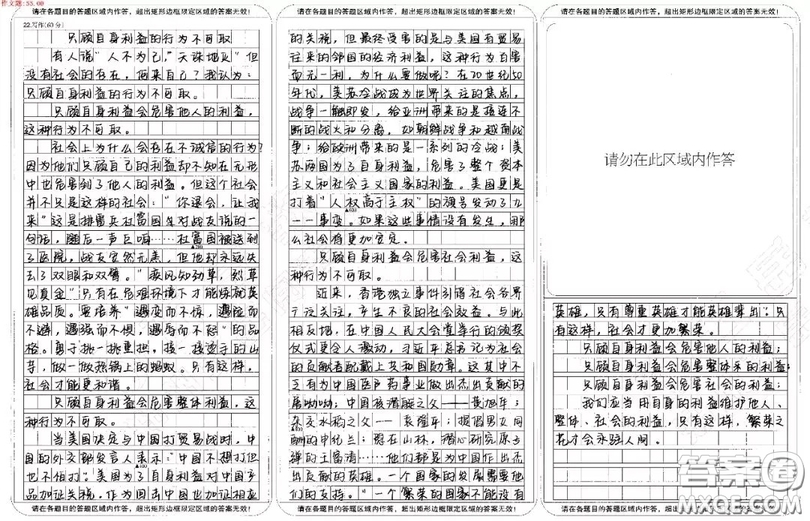 作文题:53.00
请在各题目的答题区域内作答，超出矩形边框限定区域的答案无效!
22.写作(60分)
只顾自身利益的行为不可取
有人说"人不为己,天诛地灭"但
没有社会的存在,何来自己?我认为:
只顾自身利益的行为不可取。
只顾自身利益会危害他人的利益,
这种行为不可取。
社会上为什么会存在不诚信的行为?
因为他们只顾自己的利益却不知在无形
中也危害到了他人的利益。但这个社会
并不只是这样的社会:"你退会,让我
来"这是排雷兵杜富国生对战友说的一
句话,随后一声巨响……杜富国被送到
了医院,战友安然无恙,但他却永远失
去了双眼和双臂。"疾风知劲草,烈草
见真金"只有在危难环境下才能练就英
品质。要培养"遇变而不惊,遇险而
不避,遇强而不惧,遇弱而不恨"的品
格。勇于挑一挑重担,接一接烫手的山
芋,做一做热锅上的蚂蚁。只有这样,
社会才能更和谐。
只顾自身利益会危害整体利益,这
种行为不可取。
当美国决定与中国打贸易战时,中
国的外交部发言人表示"中国不想打但
也不怕打;美国为了自身利益对中国产
品加征关税,作为中国也加征相应
请在各题目的答题区域内作答，超出矩形边框限定区域的答案无效!
请在各题目的答题区域内作答，超出矩形边框限定区域的答案无效!
的关税,但最终受害的是与美国有贸易
往来的邻国的经济利益,这种行为百害
而无一利,为什么要做呢?在20世纪50
年代,美苏冷战成为世界关注的焦点,
战争一触即发,给亚洲带来的是接连不
断的战火和分离,如朝鲜战争和越南战
争;给欧洲带来的是一系列的冷战;美
苏两国为了自身利益,危害了整个资本
主义和社会主义国家的利益。美国更是
打着"人权高于主权"的旗号发动了九
一一事变。如果这些事情没有发生,那
么社会将更加安定。
只顾自身利益会危害社会利益,这
种行为不可取。
近来,香港独立事件引得社会各界
广泛关注,产生不良的社会效益。与此
相反地,在中国人民大会堂举行的颁奖
仪式更令人激动,习近平总书记为社会
的贡献者配戴上共和国勋章。这其中不
乏有为中国医疗药事业做出杰出贡献的
屠呦呦;中国核潜艇之父——黄旭华;
杂交水稻之父——袁隆平;
的申纪兰;
中国作出杰
出贡献的英雄。一个国家的发展需要他
们的支持。"一个国家不能没有
请在各题目的答题区域内作答，超出矩形边框限定区域的答案无效!
请在各题目的答题区域内作答，超出矩形边框限定区域的答案无效!
请勿在此区域内作答
英雄,只有尊重英雄才能英雄辈出;只
有这样,社会才更加繁荣。
只顾自身利益会危害他人的利益;
只顾自身利益会危害整体的利益;
只顾自身利益会危害社会的利益;
我们应当用自身的利益维护他人、
整体、社会的利益,只有这样,繁荣之
花才会永驻人间。
请在各题目的答题区域内作答，超出矩形边框限定区域的答案无效!
答案圈
MXQE.COM